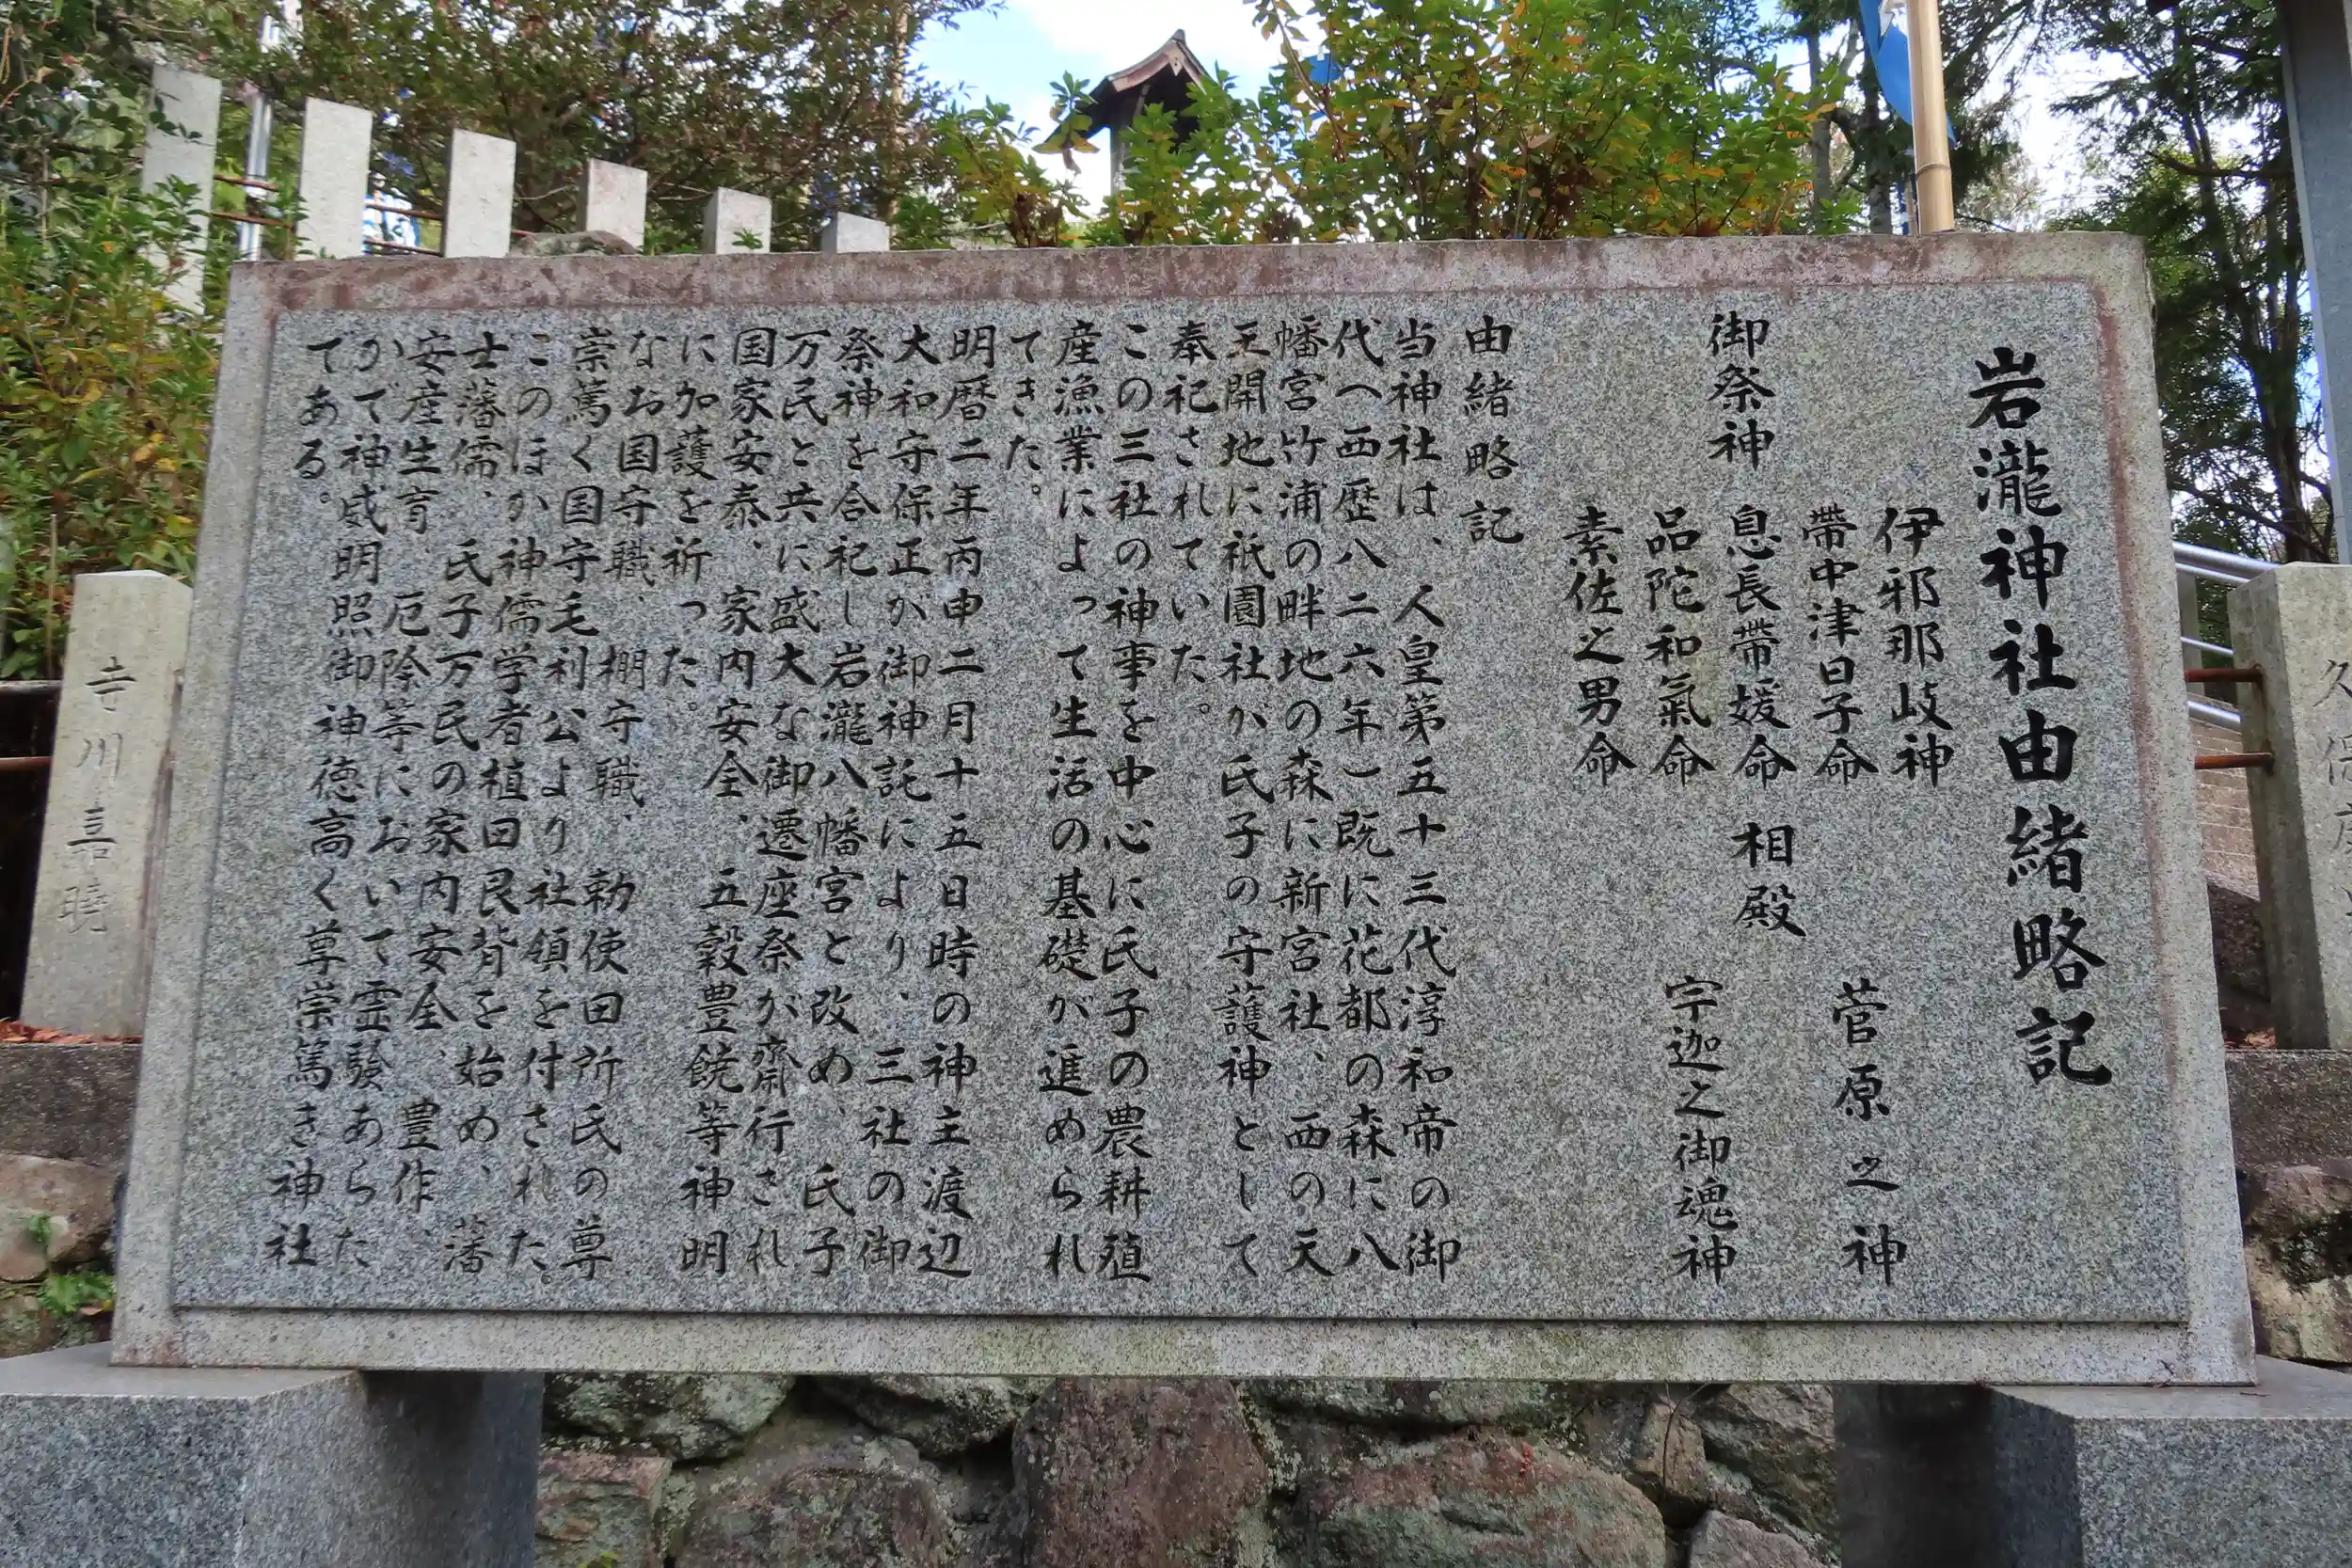 岩瀧神社由緒略記
伊邪那岐神
帶中津日子命
御祭神　息長帶媛命　相殿
品陀和氣命
素佐之男命
菅原之神
宇迦之御魂神
由緒略記
当神社は、人皇第五十三代淳和帝の御
代(西歴八二六年)既に花都の森に八
幡宮竹浦の畔地の森に新宮社、西の天
王開地に祇園社が氏子の守護神として
奉祀されていた。
この三社の神事を中心に氏子の農耕殖
産漁業によって生活の基礎が進められ
てきた。
明暦二年丙申二月十五日時の神主渡辺
大和守保正が御神託により、三社の御
祭神を合祀し岩瀧八幡宮と改め、氏子
万民と共に盛大な御遷座祭が齋行され
国家安泰、家内安全、五穀豊饒等神明
に加護を祈った。
なお国守職、棚守職、勅使田所氏の尊
崇篤く国守毛利公より社領を付された。
このほか神儒学者植田艮背を始め、藩
士藩儒、氏子万民の家内安全、豊作、
安産生育、厄除等において霊験あらた
かで神威明照御神徳高く尊崇篤き神社
である。
寺川喜暁
久保